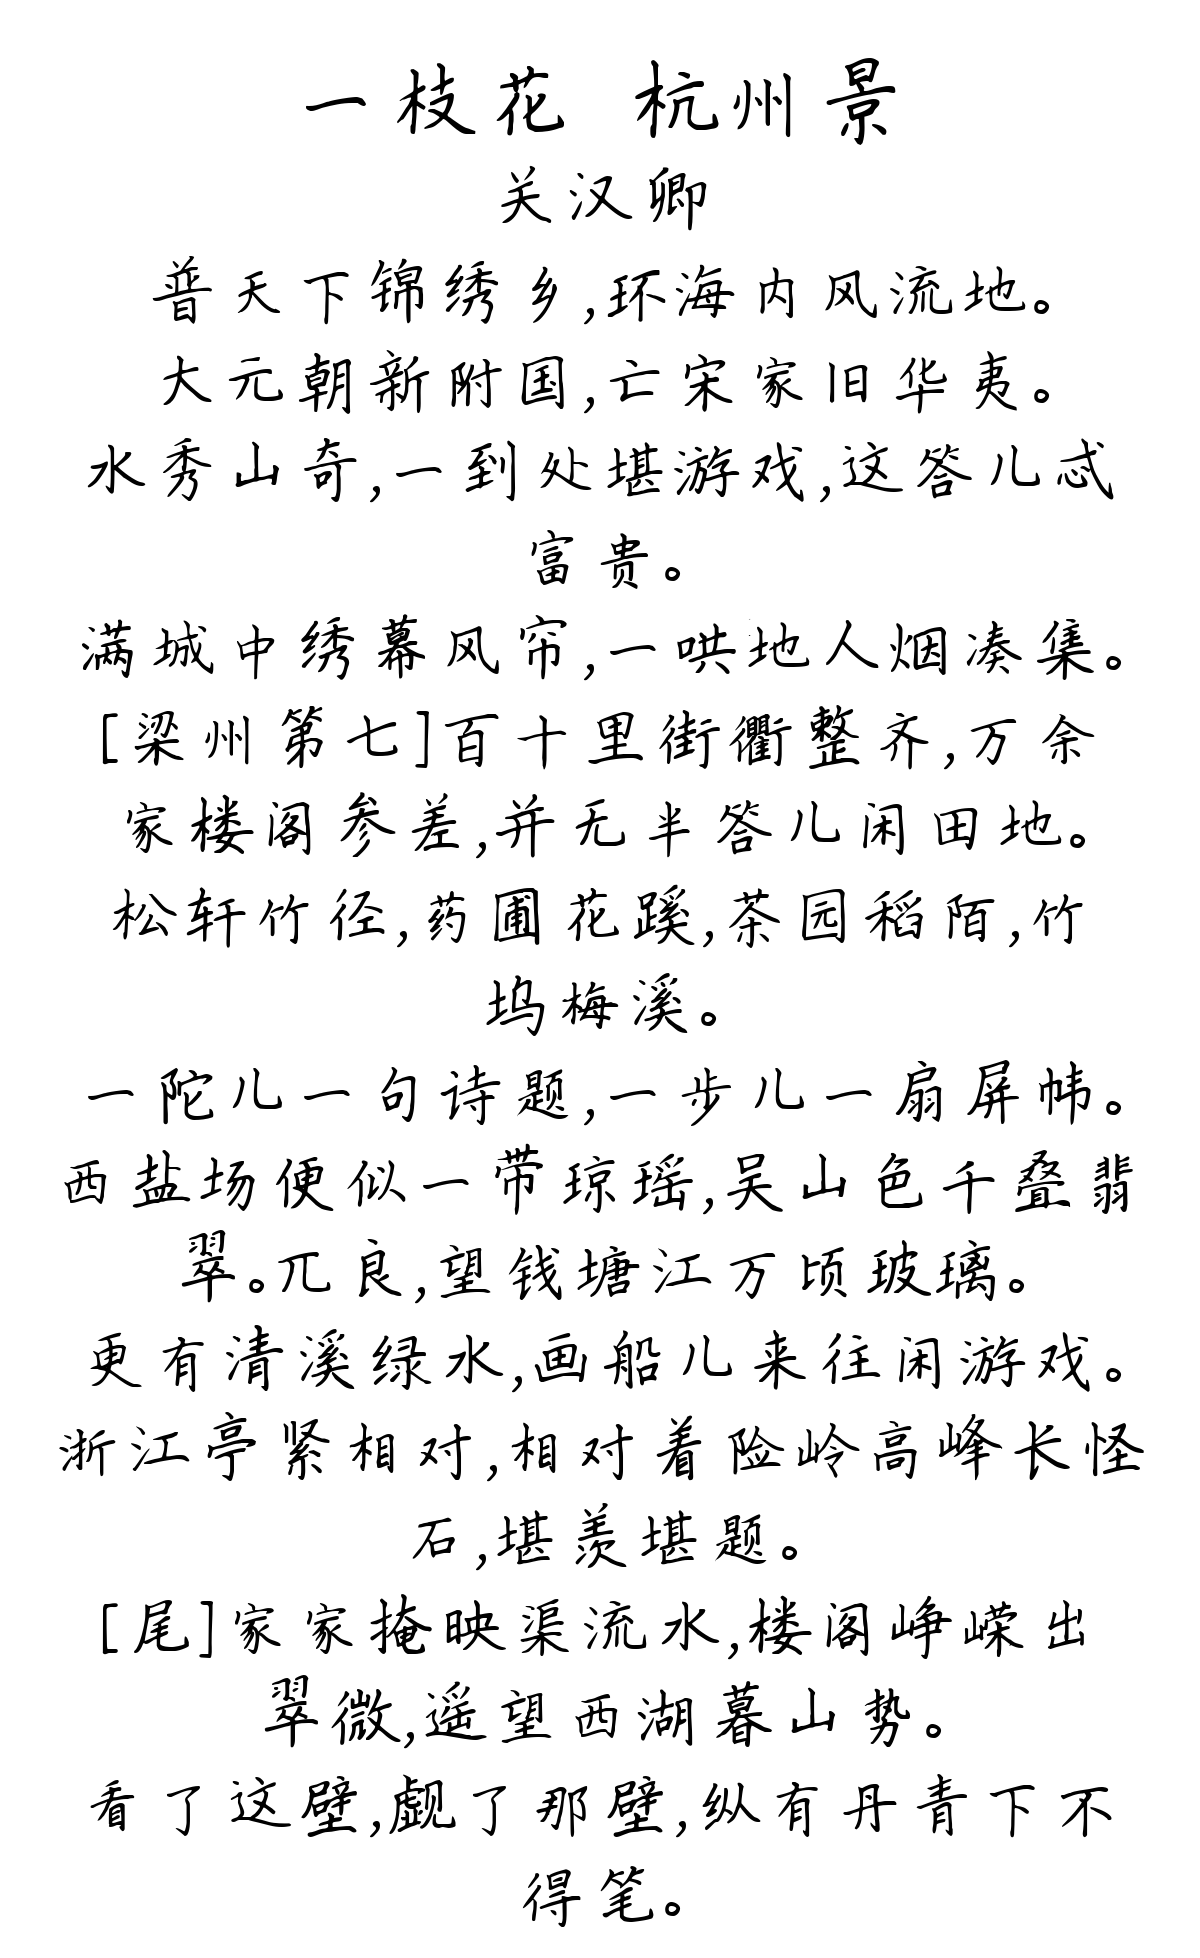 一枝花 杭州景
关汉卿
普天下锦绣乡,环海内风流地。
大元朝新附国,亡宋家旧华夷。
水秀山奇,一到处堪游戏,这答儿忒
富贵。
满城中绣幕风帘,一哄地人烟凑集。
[梁州第七]百十里街衢整齐,万余
家楼阁参差,并无半答儿闲田地。
松轩竹径,药圃花蹊,茶园稻陌,竹
坞梅溪。
一陀儿一句诗题,一步儿一扇屏帏。
西盐场便似一带琼瑶,吴山色千叠翡
翠。兀良,望钱塘江万顷玻璃。
更有清溪绿水,画船儿来往闲游戏。
浙江亭紧相对,相对着险岭高峰长怪
石,堪羡堪题。
[尾]家家掩映渠流水,楼阁峥嵘出
翠微,遥望西湖暮山势。
看了这壁,觑了那壁,纵有丹青下不
得笔。